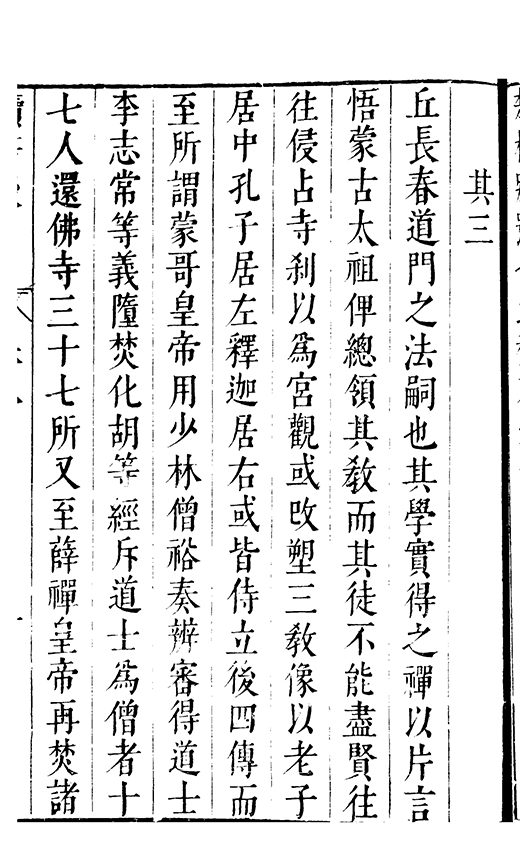 其三
丘長春道門之法嗣也其學實得之禪以片言
悟蒙古太祖俾總領其敎而其徒不能盡賢往
往侵占寺刹以爲宮觀或改塑三敎像以老子
居中孔子居左釋迦居右或皆侍立後四傳而
至所謂蒙哥皇帝用少林僧裕奏辨審得道士
李志常等義墮焚化胡等經斥道士爲僧者十
七人還佛寺三十七所又至薛禪皇帝再焚諸